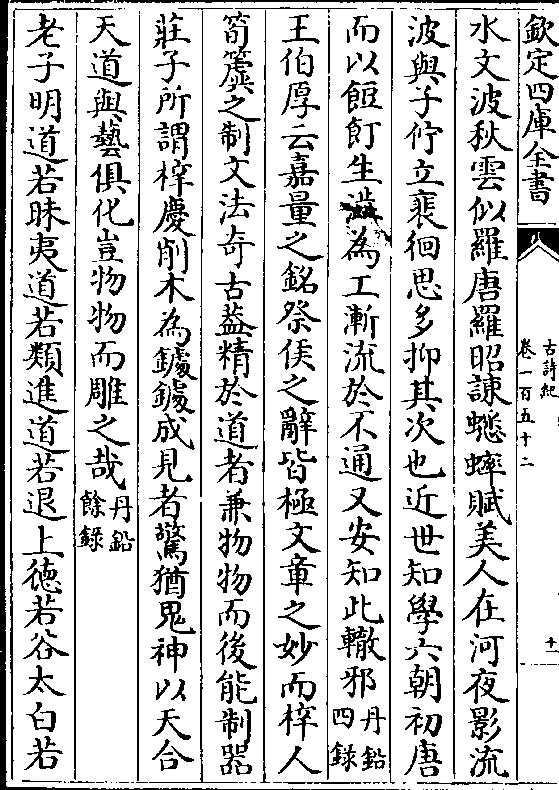 欽定四庫全書
古詩紀
卷一百五十二
十
水文波秋雲似羅唐羅昭諫蟋蟀賦美人在河夜影流
波與子佇立裵徊思多抑其次也近世知學六朝初唐
而以餖飣生澁為工漸流於不通又安知此轍邪丹鉛四録
王伯厚云嘉量之銘祭侯之辭皆極文章之妙而梓人
筍簴之制文法奇古葢精於道者兼物物而後能制器
莊子所謂梓慶削木為鐻鐻成見者驚猶鬼神以天合
天道與藝俱化豈物物而雕之哉丹鉛餘録
老子明道若昧夷道若類進道若退上徳若谷太白若